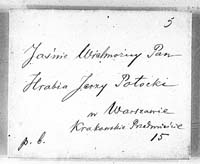 5
Jaśnie Wielmożny Pan
Hrabia Jerzy Potocki
w Warszawie
Krakowskie Przedmieście
15
p. b.